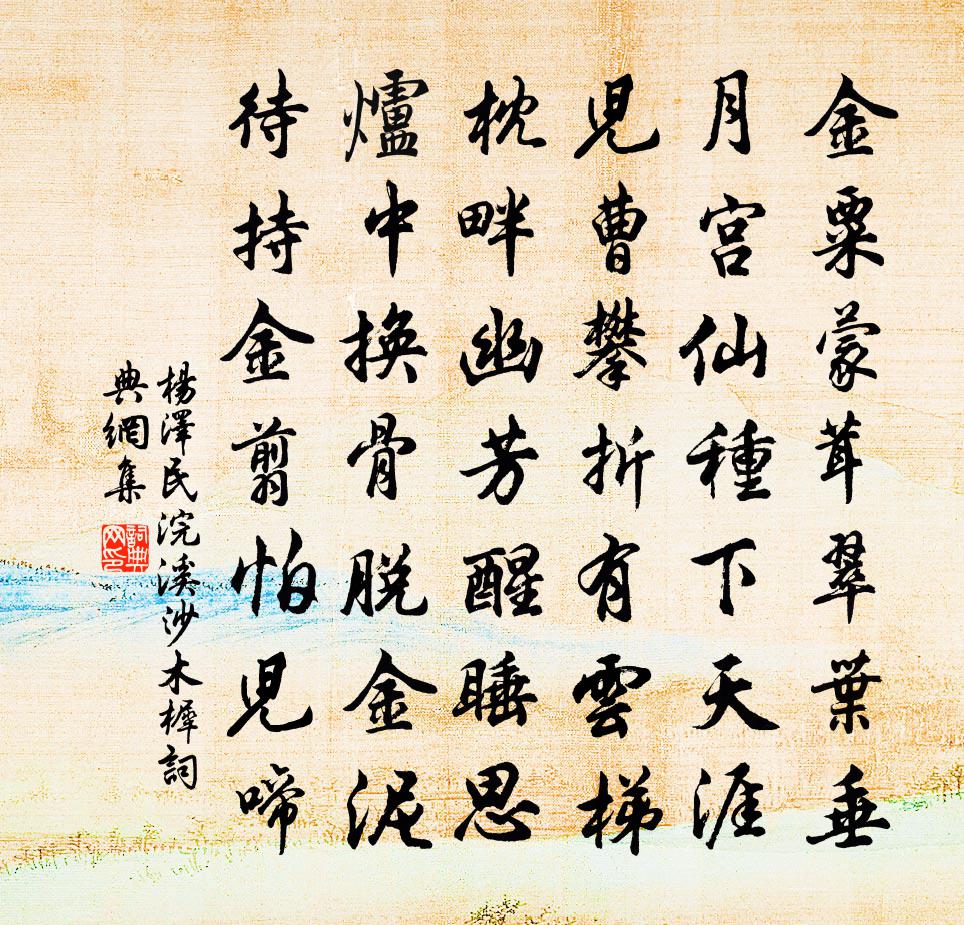 金粟蒙茸翠葉垂
月宫仙種下天涯
兒曹攀折有雲梯
枕畔幽芳醒睡思
爐中換骨脫金泥
待持金剪怕兒啼
楊澤民浣溪沙木樨詞
典網集
詞典網印